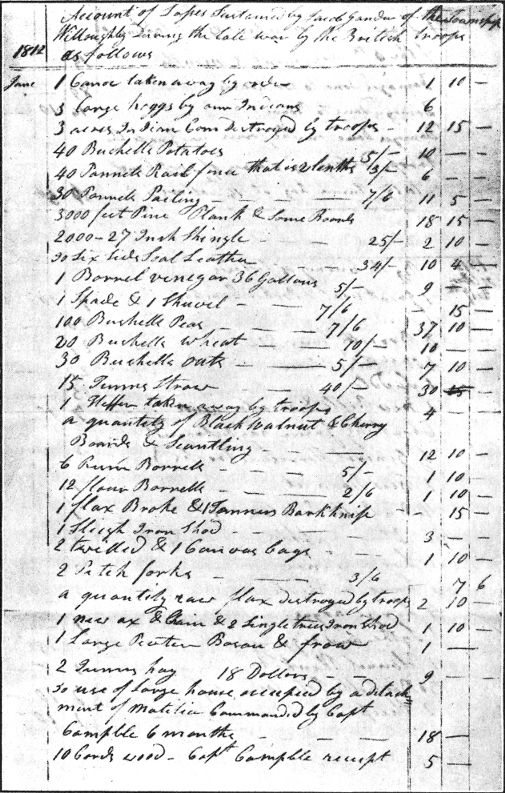 Account of Losses Sustained by Jacob Gander of the Township
Willoughby During the late war by the British troops
1812 as follows
June 1 Canoe taken away by 1 10 –
3 large hoggs by Indians 6
3 acres Indian Corn destroyed by troops – 12 15 –
40 Buchells Potatoes 5/– 10 –
40 Pannels Rail fence that is 2 lenths 3/– 6 –
30 Pannels Pailing – – 7/6 11 5 –
3000 feet Pine Plank & Some Boards 18 15 –
2000 – 27 Inch Shingle – – 25/– 2 10 –
Six Sides Soal Leather – – 34/– 10 4 –
1 Borrel vinegar 36 Gallons 5/– 9 –
1 Spade & 1 Shuvel – – 7/6 15 –
100 Buchells Peas – – – 7/6 37 10 –
20 Buchells wheat – – 10/– 10 –
30 Buchells oats – – 5/– 7 10 –
15 Tunns Straw – – 40/– 30 –
1 Heffer taken away by troops 4 –
a quantity of Black Walnut & Cherry
Boards & Scantling – – – 12 10 –
6 Rum Borrells – – – 5/– 1 10 –
12 flour Borrells – – – 2/6 1 10 –
1 flax Broke & 1 Tanners Barkknife – – 15 –
1 Sleigh Iron Shod – – – 3 –
2 twilled & 1 Canvas bags – – 1 10 –
2 Pitch forks – – – 3/6 7 6
a quantity raw flax destroyed by troops 2 10 –
1 new ax & Chain & 2 Singletrees Iron Shod 1 10 –
1 Large Peuter Bason & frow – 1 –
2 Tunns hay 18 Dollors – – 9 –
To use of Large house occupied by a detach
ment of Matilia Commanded by Capt
Campble 6 months – – – 18 –
10 Cords wood – Capt Campble receipt 5 –